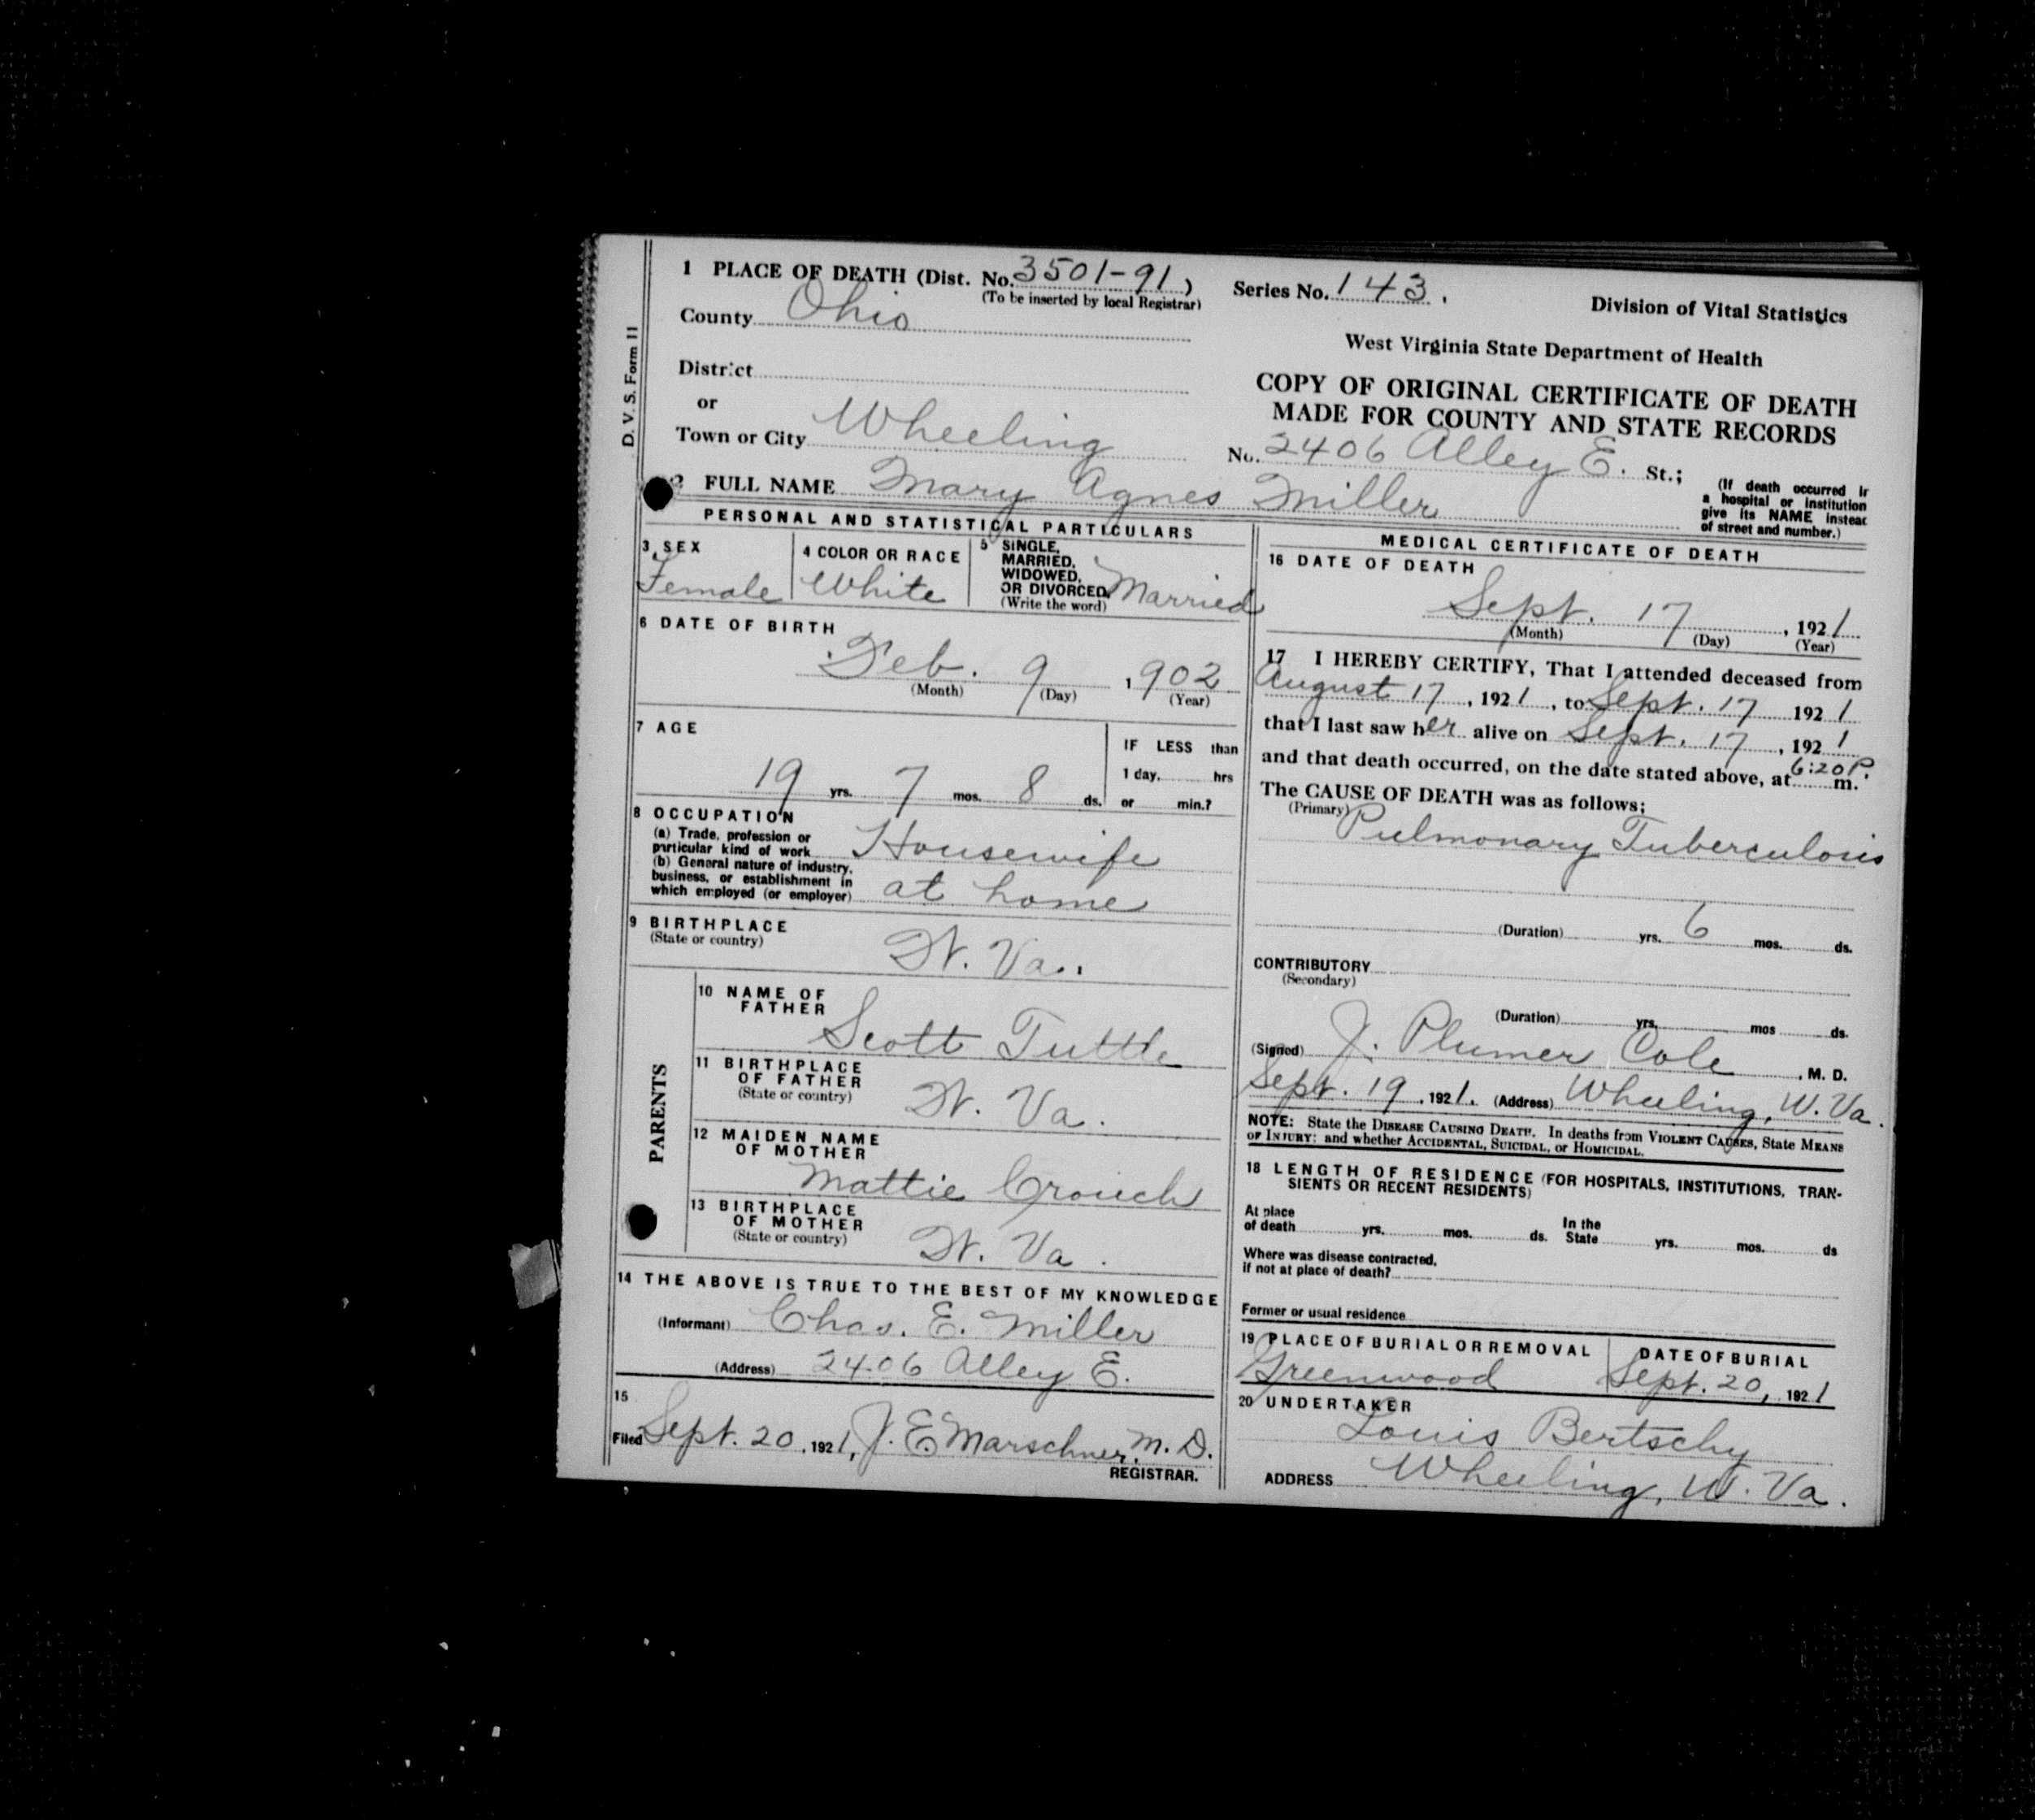 D. V. S. Form 11
1 PLACE OF DEATH (Dist. No. 3501-91)
(To be inserted by local Registrar)
County Ohio
District
or
Town or City Wheeling
Series No. 143.
Division of Vital Statistics
West Virginia State Department of Health
COPY OF ORIGINAL CERTIFICATE OF DEATH
MADE FOR COUNTY AND STATE RECORDS
No. 2406 Alley E. St.;
(If death occurred ir
a hospital or institution
give its NAME insteac
of street and number.)
2 FULL NAME Mary Agnes Miller
PERSONAL AND STATISTICAL PARTICULARS
3 SEX
Female
4 COLOR OR RACE
White
5 SINGLE,
MARRIED,
WIDOWED,
OR DIVORCED
(Write the word)
Married
6 DATE OF BIRTH
Feb. 9 1902
(Month) (Day) (Year)
7 AGE
19 yrs. 7 mos. 8 ds.
IF LESS than
1 day, hrs
or min.?
8 OCCUPATION
(a) Trade, profession or
particular kind of work Housewife
(b) General nature of industry,
business, or establishment in
which employed (or employer) at home
9 BIRTHPLACE
(State or country)
W. Va.
PARENTS
10 NAME OF
FATHER
Scott Tuttle
11 BIRTHPLACE
OF FATHER
(State or country)
W. Va.
12 MAIDEN NAME
OF MOTHER
Mattie Crouch
13 BIRTHPLACE
OF MOTHER
(State or country)
W. Va.
14 THE ABOVE IS TRUE TO THE BEST OF MY KNOWLEDGE
(Informant) Chas. E. Miller
(Address) 2406 Alley E.
15
Filed Sept. 20, 1921, J. E. Marschner, M. D.
REGISTRAR.
MEDICAL CERTIFICATE OF DEATH
16 DATE OF DEATH
Sept. 17, 1921
(Month) (Day) (Year)
17 I HEREBY CERTIFY, That I attended deceased from
August 17, 1921, to Sept. 17 1921
that I last saw her alive on Sept. 17, 1921
and that death occurred, on the date stated above, at 6:20 P. m.
The CAUSE OF DEATH was as follows;
(Primary)
Pulmonary Tuberculosis
(Duration) yrs. 6 mos. ds.
CONTRIBUTORY
(Secondary)
(Duration) yrs. mos ds.
(Signed) J. Plumer Cole, M. D.
Sept. 19, 1921. (Address) Wheeling, W. Va.
NOTE: State the DISEASE CAUSING DEATH. In deaths from VIOLENT CAUSES, State MEANS
OF INJURY; and whether ACCIDENTAL, SUICIDAL, or HOMICIDAL.
18 LENGTH OF RESIDENCE (FOR HOSPITALS, INSTITUTIONS, TRAN-
SIENTS OR RECENT RESIDENTS)
At place
of death yrs. mos. ds. In the
State yrs. mos. ds
Where was disease contracted,
if not at place of death?
Former or usual residence
19 PLACE OF BURIAL OR REMOVAL
Greenwood
DATE OF BURIAL
Sept. 20, 1921
20 UNDERTAKER
Louis Bertschy
ADDRESS Wheeling, W. Va.